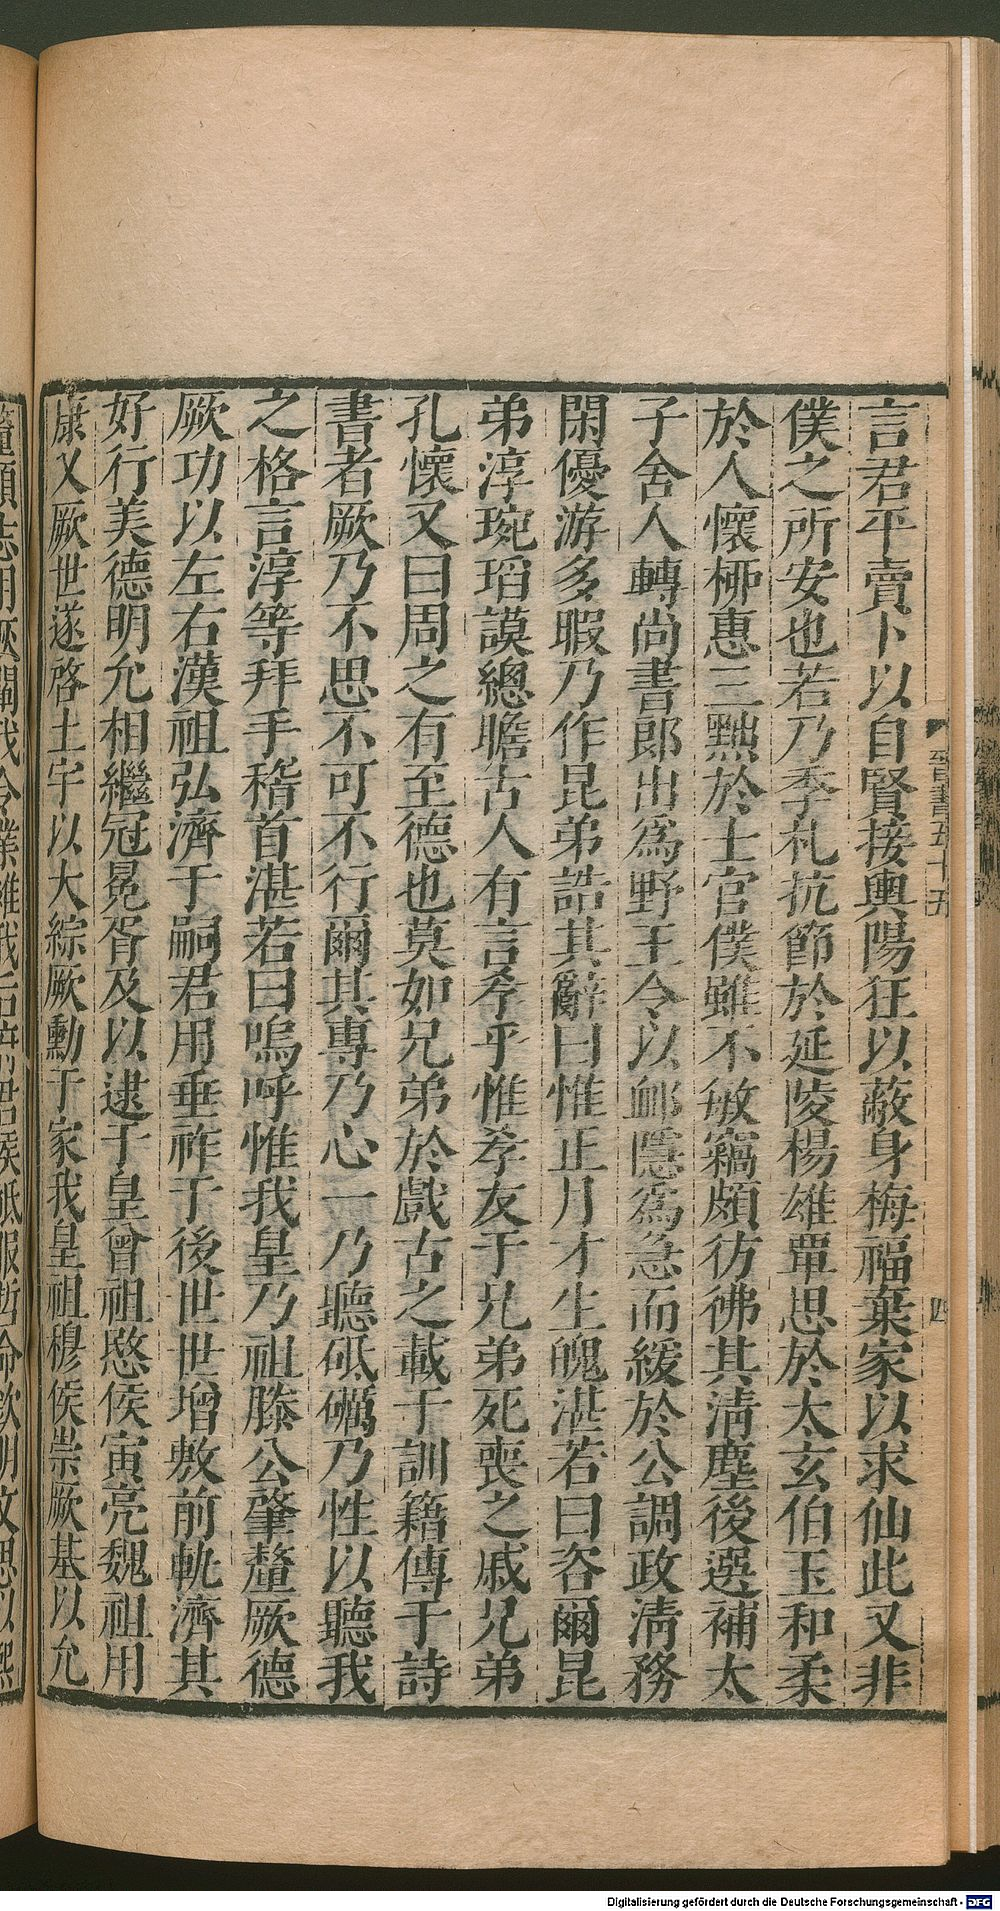 言君平賣卜以自賢接輿陽狂以蔽身梅福棄家以求仙此又非
僕之所安也若乃季札抗節於延陵楊雄覃思於太玄伯玉和柔
於人懷柳惠三黜於士官僕雖不敏竊頗彷彿其清塵後選補太
子舍人轉尚書郎出爲野王令以卹隱爲急而緩於公調政清務
閑優游多暇乃作昆弟誥其辭曰惟正月才生魄湛若曰咨爾昆
弟淳琬瑫謨總瞻古人有言孝乎惟孝友于兄弟死喪之戚兄弟
孔懷又曰周之有至德也莫如兄弟於戲古之載于訓籍傳于詩
書者厥乃不思不可不行爾其專乃心一乃聽砥礪乃性以聽我
之格言淳等拜手稽首湛若曰嗚呼惟我皇乃祖滕公肇釐厥德
厥功以左右漢祖弘濟于嗣君用垂祚于後世世增敷前軌濟其
好行美德明允相繼冠冕胥及以逮于皇曾祖愍侯寅亮魏祖用
康乂厥世遂啓土宇以大綜厥勳于家我皇祖穆侯崇厥基以允
晉書五十五
四
Digitalisierung gefördert durch die Deutsche Forschungsgemeinschaft - DFG